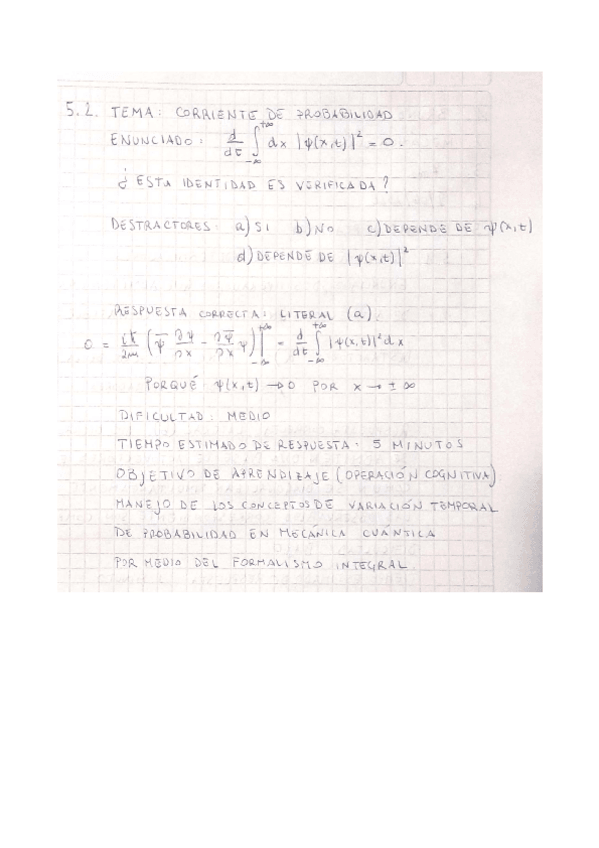 5.2. TEMA: CORRIENTE DE PROBABILIDAD
ENUNCIADO: d/dt ∫_{-∞}^{+∞} dx |ψ(x,t)|² = 0.
¿ ESTA IDENTIDAD ES VERIFICADA?
DESTRACTORES: a) SI b) NO c) DEPENDE DE ψ(x,t)
d) DEPENDE DE |ψ(x,t)|²
RESPUESTA CORRECTA: LITERAL (a).
0 = iħ/2m (ψ̄ ∂ψ/∂x - ∂ψ̄/∂x ψ)|_{-∞}^{+∞} = d/dt ∫_{-∞}^{+∞} |ψ(x,t)|² dx
PORQUÉ ψ(x,t) → 0 POR x → ± ∞
DIFICULTAD: MEDIO
TIEMPO ESTIMADO DE RESPUESTA: 5 MINUTOS
OBJETIVO DE APRENDIZAJE (OPERACIÓN COGNITIVA)
MANEJO DE LOS CONCEPTOS DE VARIACIÓN TEMPORAL
DE PROBABILIDAD EN MECÁNICA CUÁNTICA
POR MEDIO DEL FORMALISMO INTEGRAL.